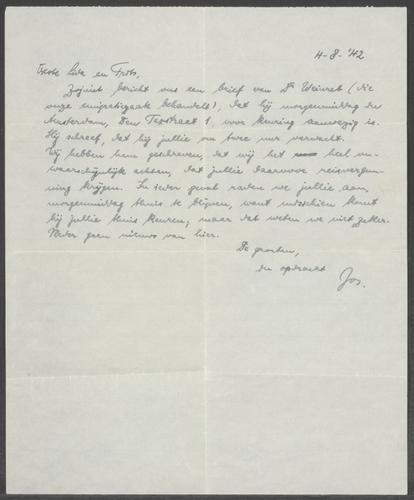 4-8-'42
Beste Lide en Frits,
Zojuist bericht ons een brief van Dr Weinreb (die
onze emigratiezaak behandelt), dat hij morgenmiddag de
Amsterdam, Den Texstraat 1, voor keuring aanwezig is.
Hij schreef, dat hij jullie om twee uur verwacht.
Wij hebben hem geschreven, dat wij het heel on-
waarschijnlijk achten, dat jullie daarvoor reisvergun-
ning krijgen. In ieder geval raden we jullie aan,
morgenmiddag thuis te blijven, want misschien komt
hij jullie thuis keuren, maar dat weten we niet zeker.
Verder geen nieuws van hier.
De groeten,
in opdracht
Jos.